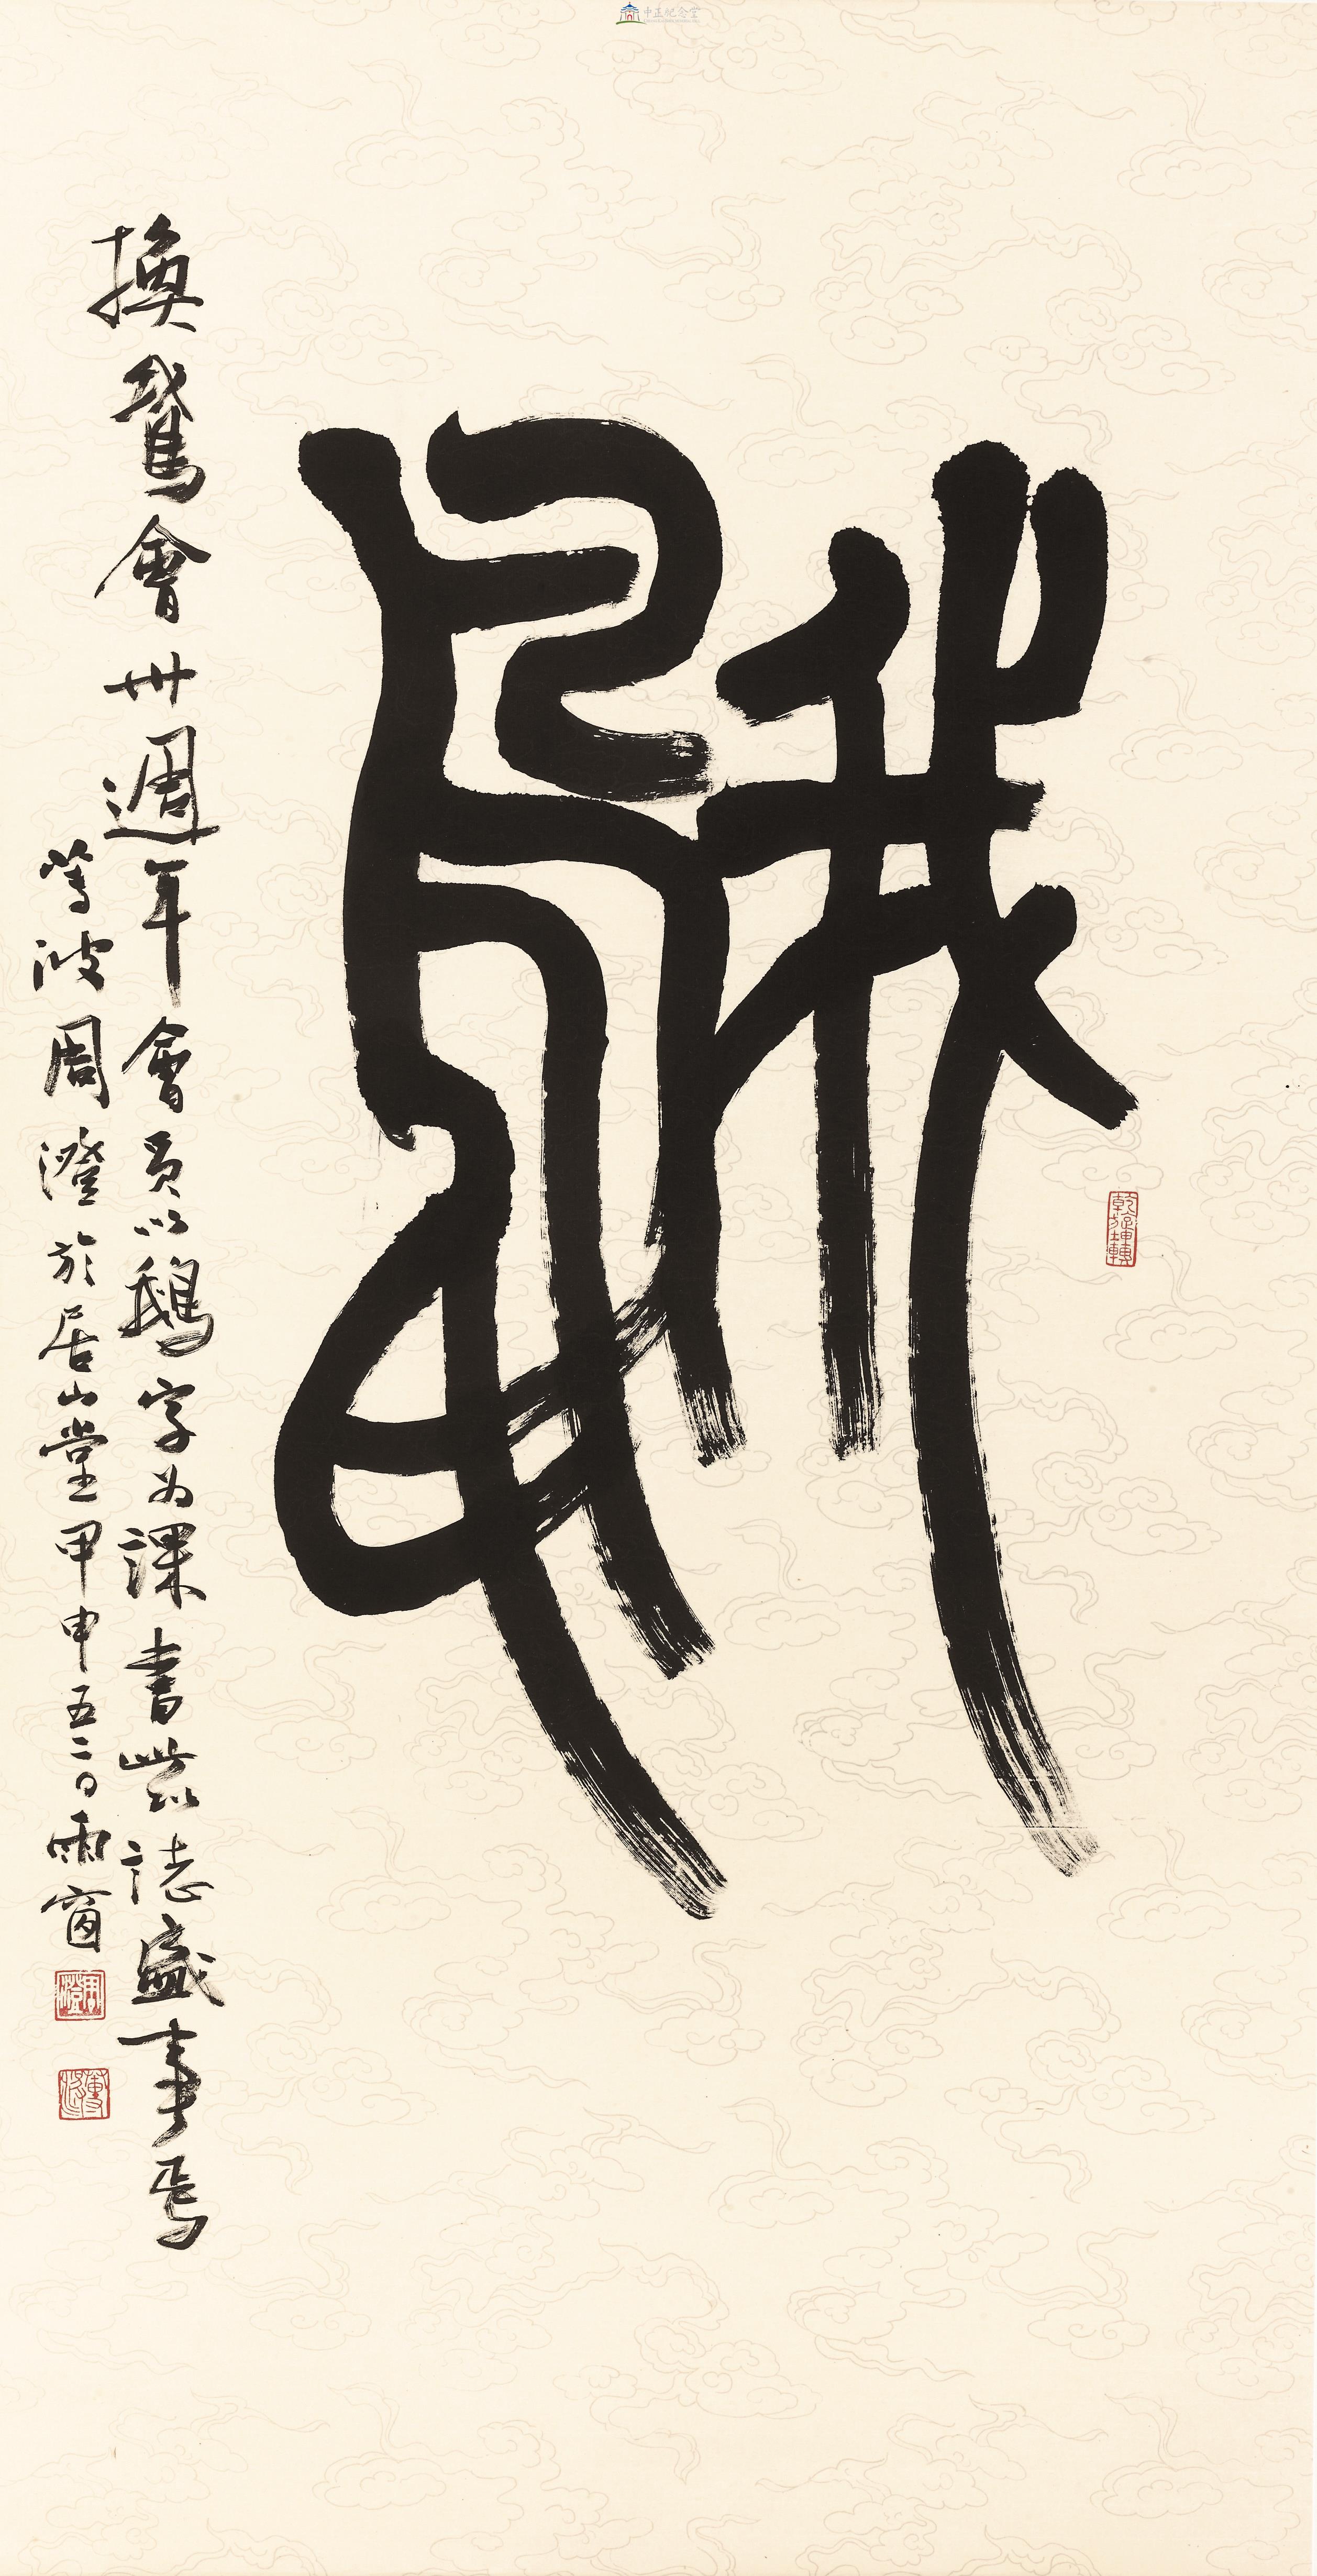 中正紀念堂
鵝
乾旋坤轉
換鵞會卅週年會員以鵝字為課書此以誌盛事焉
蓴波周澄於居山堂甲申五二〇雨窗
周澄
蓴波